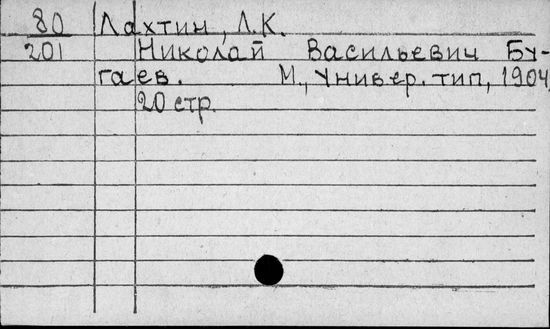 80 Лахтин, Л.К.
201 Николай Васильевич Бу-
гаев. М., Универ. тип, 1904,
20 стр.